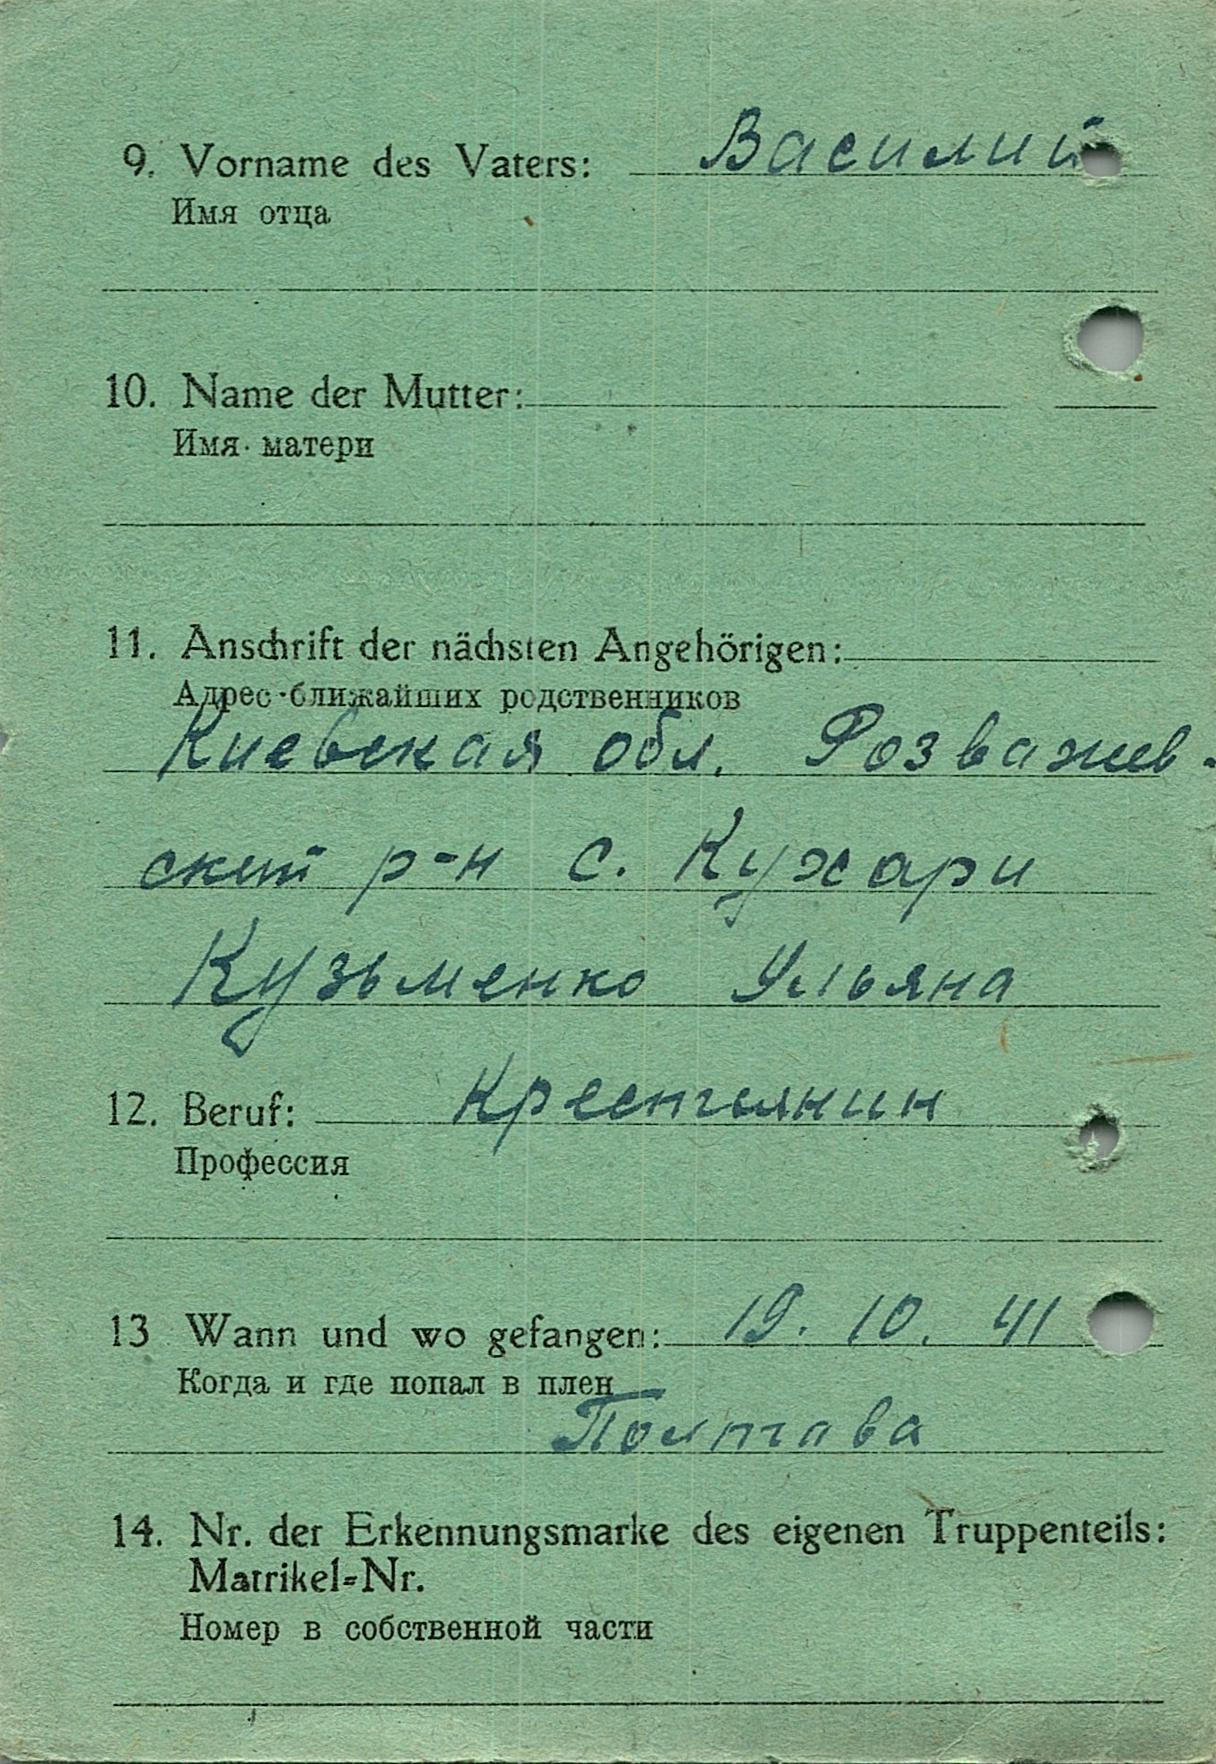 9. Vorname des Vaters: Василий
Имя отца
10. Name der Mutter:
Имя матери
11. Anschrift der nächsten Angehörigen:
Адрес ближайших родственников
Киевская обл. Розважев-
ский р-н с. Кухари
Кузьменко Ульяна
12. Beruf: Крестьянин
Профессия
13 Wann und wo gefangen: 19. 10. 41
Когда и где попал в плен
Полтава
14. Nr. der Erkennungsmarke des eigenen Truppenteils:
Matrikel=Nr.
Номер в собственной части